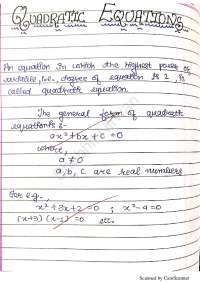 QUADRATIC EQUATIONS
An equation in which the highest power of
variable, i.e., degree of equation is 2, is
called quadratic equation.
The general form of quadratic
equation is :-
ax²+bx+c=0
where,
a≠0
a,b,c are real numbers
For eg.,
x²+3x+2=0 ; x²-4=0
(x+3) (x-5)=0 etc.
Scanned by CamScanner